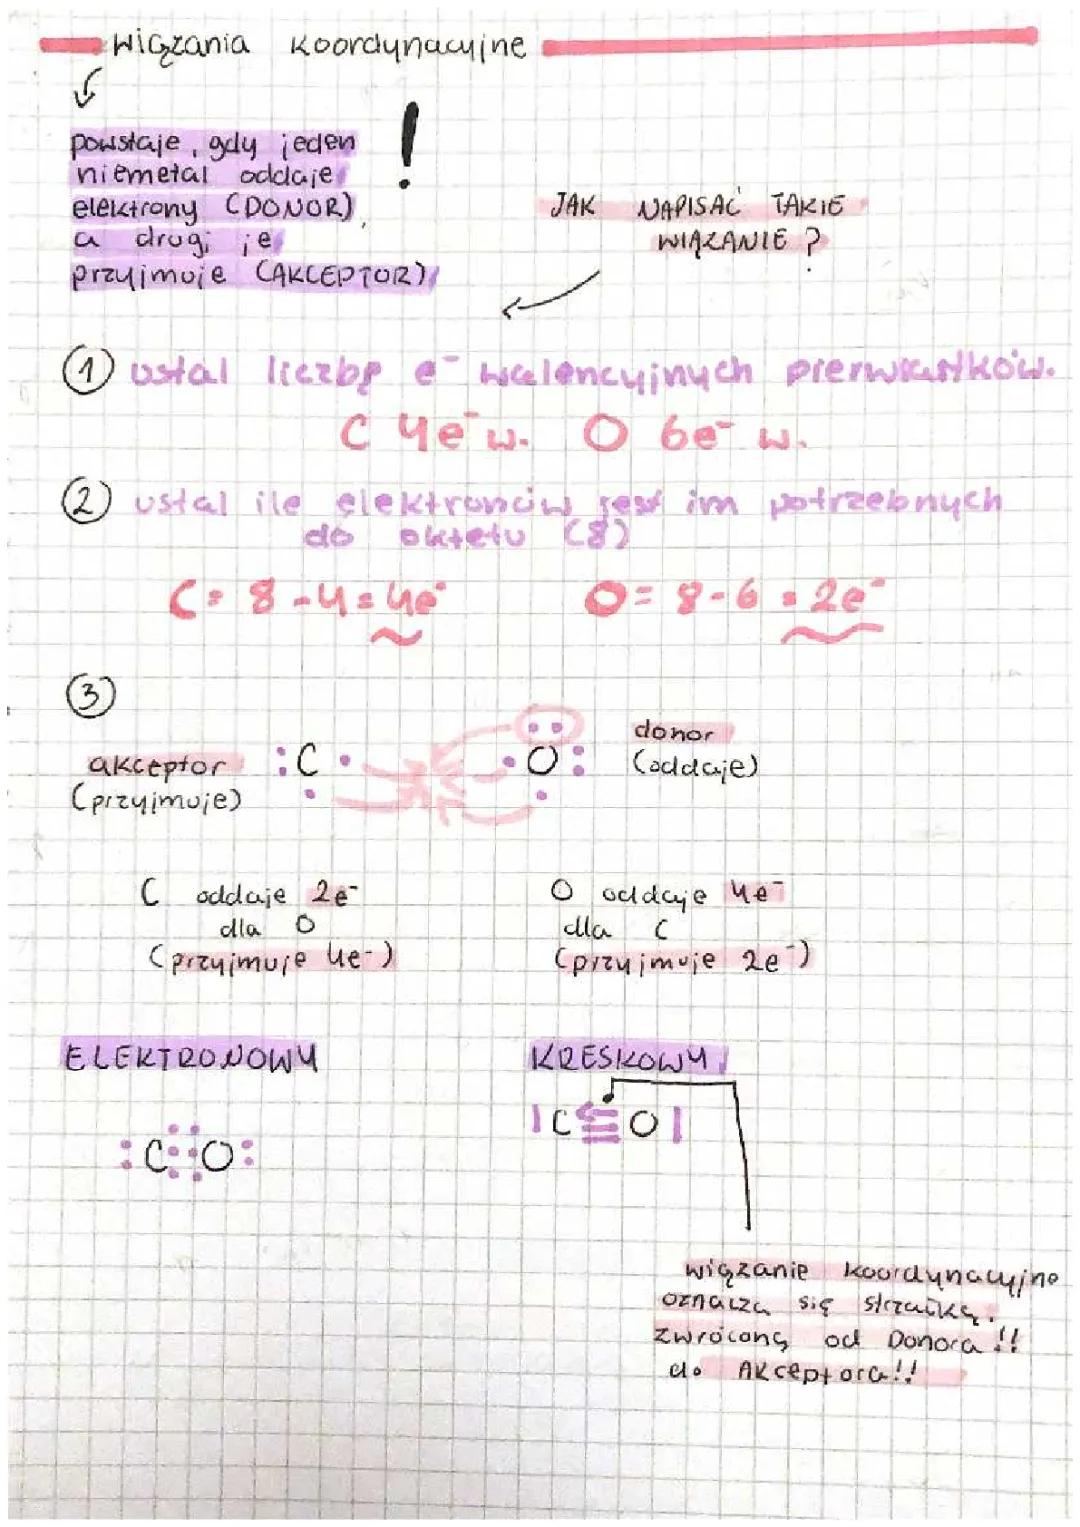 Wiązania koordynacyjne
powstaje, gdy jeden
niemetal oddaje
elektrony (DONOR),
a drugi je
przyjmuje (AKCEPTOR)
!
JAK NAPISAĆ TAKIE
WIĄZANIE ?
1 ustal liczbę e⁻ walencyjnych pierwiastków.
C 4e⁻ w. O 6e⁻ w.
2 ustal ile elektronów jest im potrzebnych
do oktetu (8)
C = 8 - 4 = 4e⁻ O = 8 - 6 = 2e⁻
3
akceptor
(przyjmuje)
:C· ·O:
donor
(oddaje)
C oddaje 2e⁻
dla O
(przyjmuje 4e⁻)
O oddaje 4e⁻
dla C
(przyjmuje 2e⁻)
ELEKTRONOWY
:C⋮⋮O:
KRESKOWY
|C≡O|
wiązanie koordynacyjne
oznacza się strzałką.
zwróconą od Donora !!
do Akceptora!!